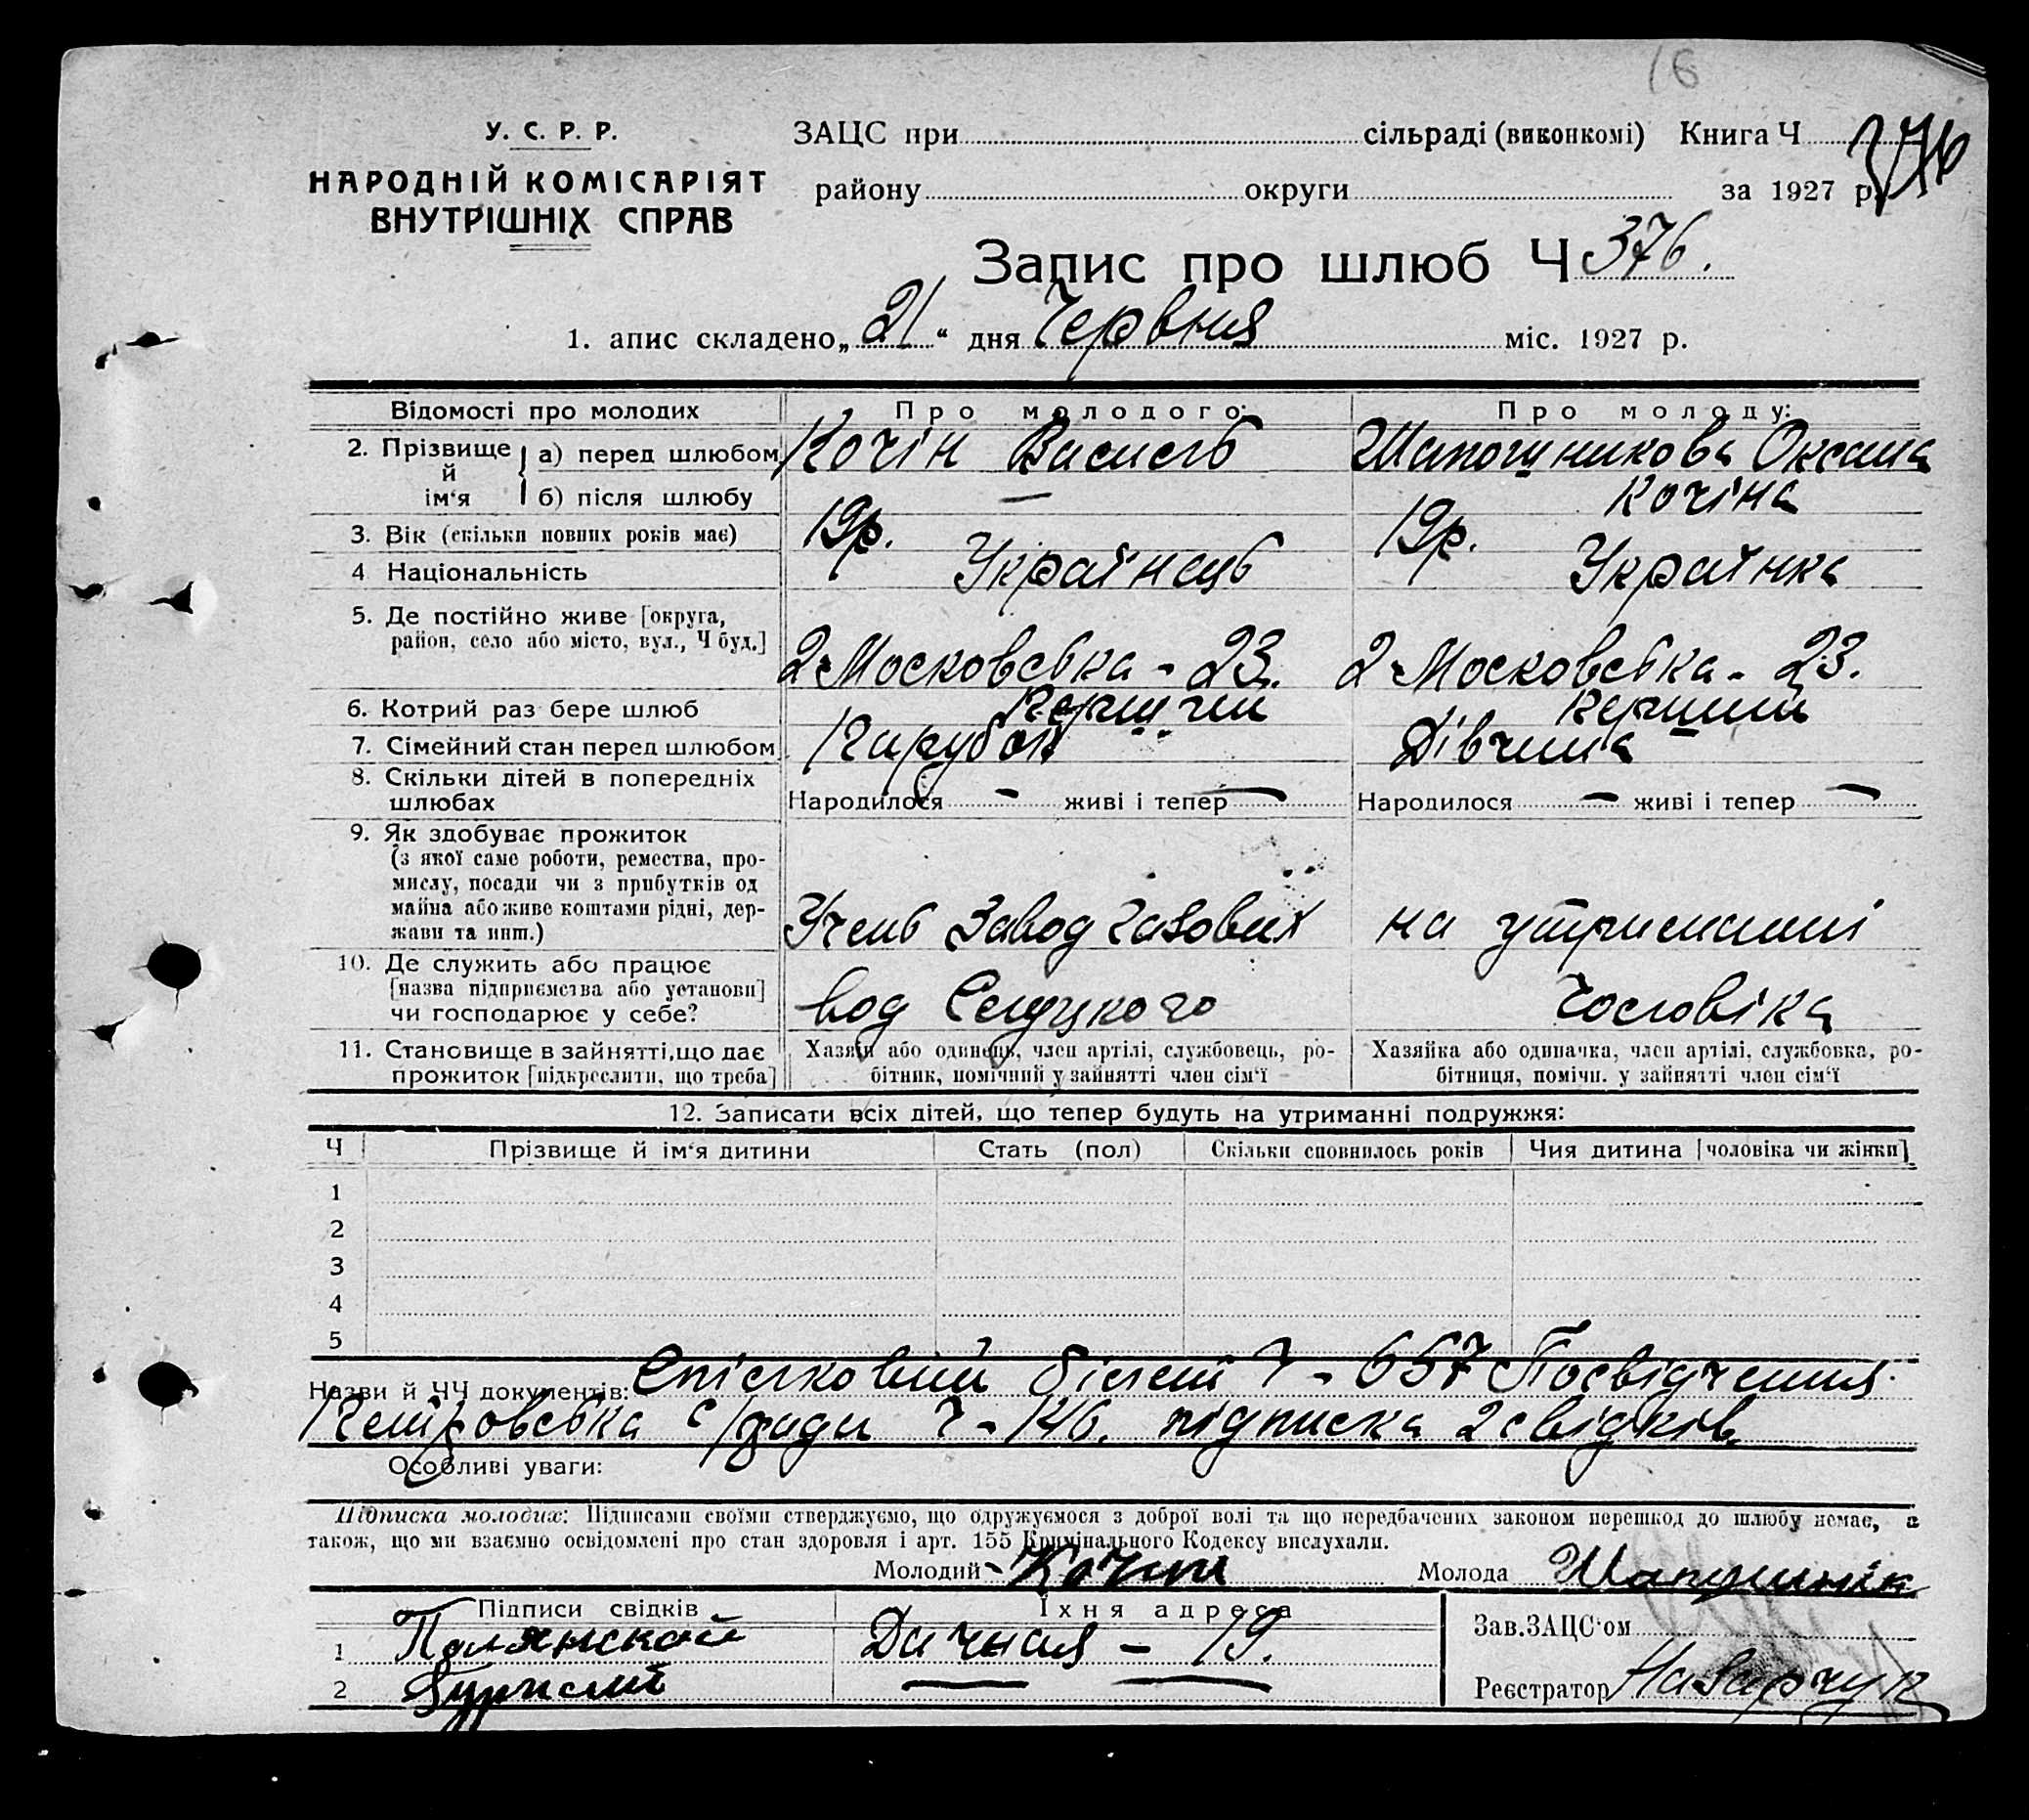 16
У. С. Р. Р.
НАРОДНІЙ КОМІСАРІЯТ
ВНУТРІШНІХ СПРАВ
ЗАЦС при сільраді (виконкомі) Книга Ч 376
району округи за 1927 р.
Запис про шлюб Ч 376.
1. апис складено „21“ дня Червня міс. 1927 р.
Відомості про молодих Про молодого: Про молоду:
2. Прізвище й ім‘я а) перед шлюбом Кочін Василь Шапошникова Оксана
б) після шлюбу — Кочіна
3. Вік (скільки повних років має) 19р. 19р.
4 Національність Українець Українка
5. Де постійно живе [округа,
район, село або місто, вул., Ч буд.] 2 Московська - 23. 2 Московська - 23.
6. Котрий раз бере шлюб Перший Перший
7. Сімейний стан перед шлюбом Парубок Дівчина
8. Скільки дітей в попередніх
шлюбах Народилося — живі і тепер — Народилося — живі і тепер —
9. Як здобуває прожиток
(з якої саме роботи, ремества, про-
мислу, посади чи з прибутків од
майна або живе коштами рідні, дер-
жави та инш.) Учень Завод Газових на утриманні
10. Де служить або працює
[назва підприємства або установи]
чи господарює у себе? вод чоловіка
11. Становище в зайнятті, що дає
прожиток [підкреслити, що треба]
Хазяїн або одинець, член артілі, службовець, ро-
бітник, помічний у зайнятті член сім‘ї
Хазяйка або одиначка, член артілі, службовка, ро-
бітниця, помічн. у зайнятті член сім‘ї
12. Записати всіх дітей, що тепер будуть на утриманні подружжя:
Ч Прізвище й ім‘я дитини Стать (пол) Скільки сповнилось років Чия дитина [чоловіка чи жінки]
1
2
3
4
5
Назви й ЧЧ документів: Спілковий білет Ч - 657 Посвідчення
Петровська с/ради Ч - 146. підписка 2 свідків.
Особливі уваги:
Підписка молодих: Підписами своїми стверджуємо, що одружуємося з доброї волі та що передбачених законом перешкод до шлюбу немає, а
також, що ми взаємно освідомлені про стан здоровля і арт. 155 Кримінального Кодексу вислухали.
Молодий Кочин Молода
Підписи свідків Їхня адреса
1 Полянской Дачная - 19.
2 — —
Зав. ЗАЦС‘ом
Реєстратор